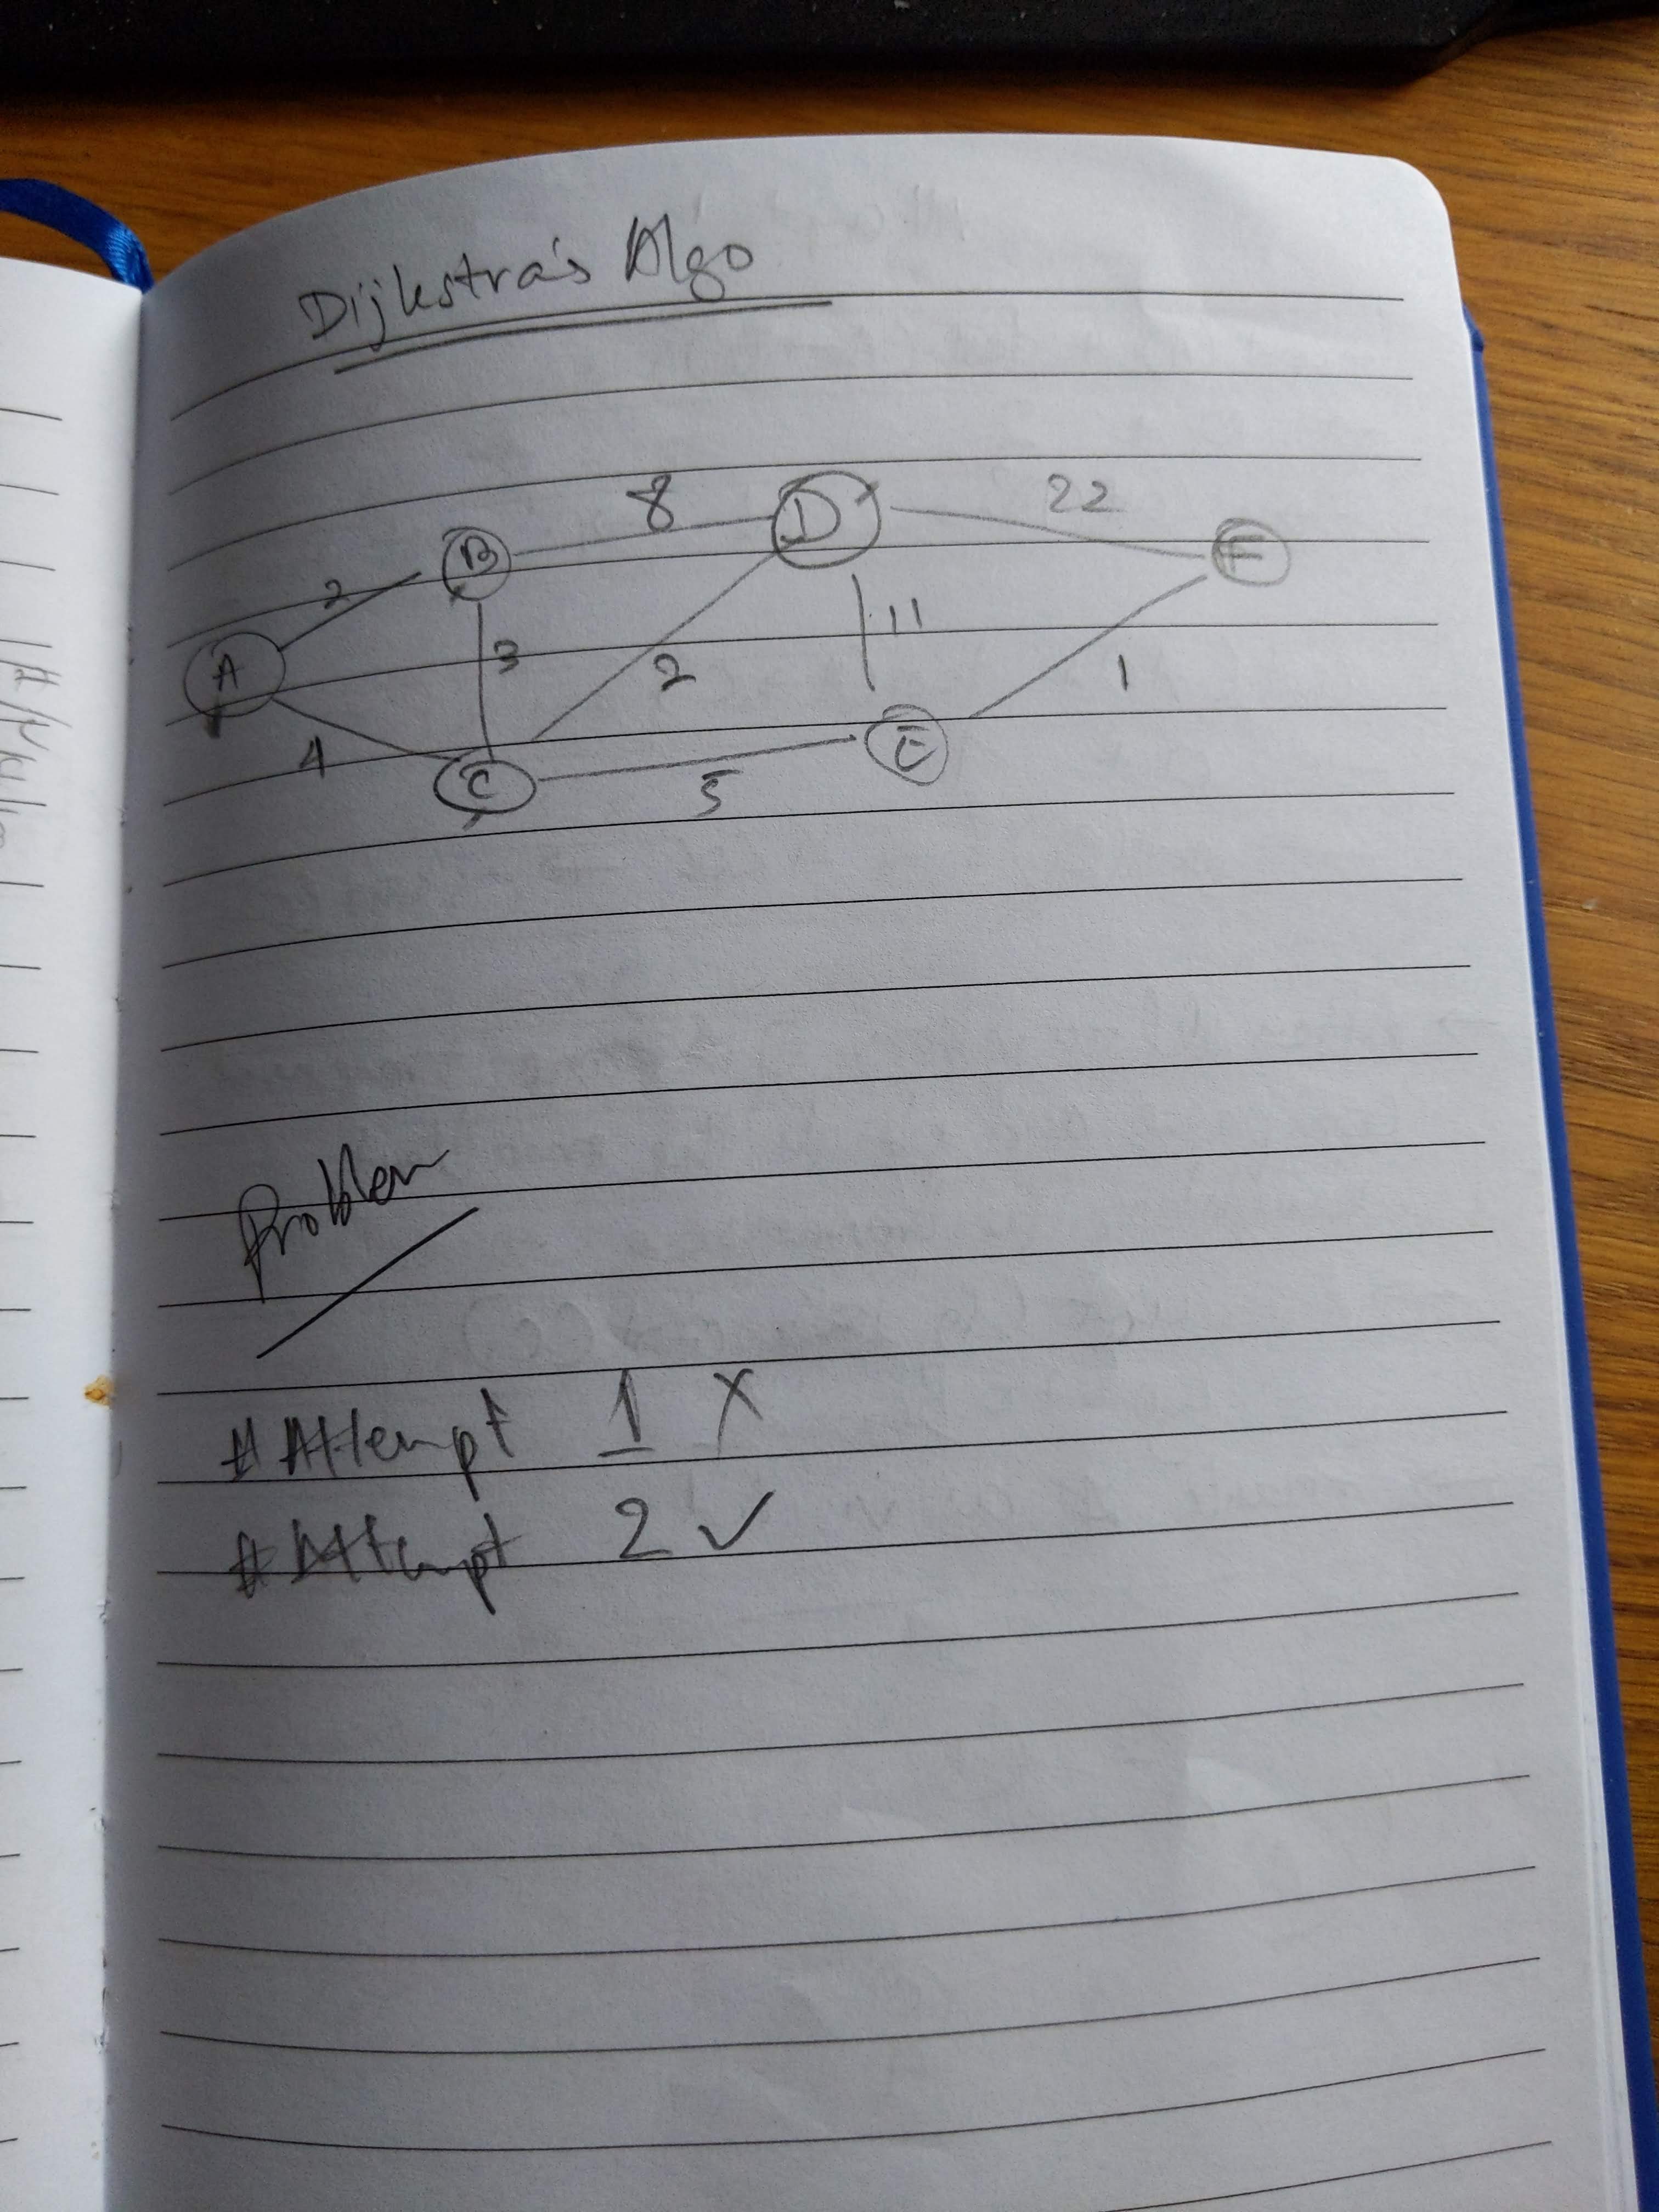 Dijkstra's Algo
8 22
B D F
2
A 3 2 11 1
4
C 5 E
Problem
# Attempt 1 X
# Attempt 2 ✓